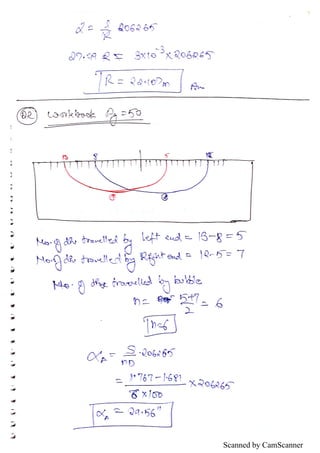 α = l/R 206265
27.99 R = 3×10⁻³ × 206265
R = 22.107m Ans
Q2 Workbook Pg = 50
13 8 5 12
No. of div travelled by left end = 13-8 = 5
No. of div travelled by Right end = 12-5 = 7
No. of div travelled by bubble
n = (5+7)/2 = 6
n=6
αA = S/nD × 206265
= (1.767 - 1.681)/(6 × 100) × 206265
αA = 29.56"
Scanned by CamScanner